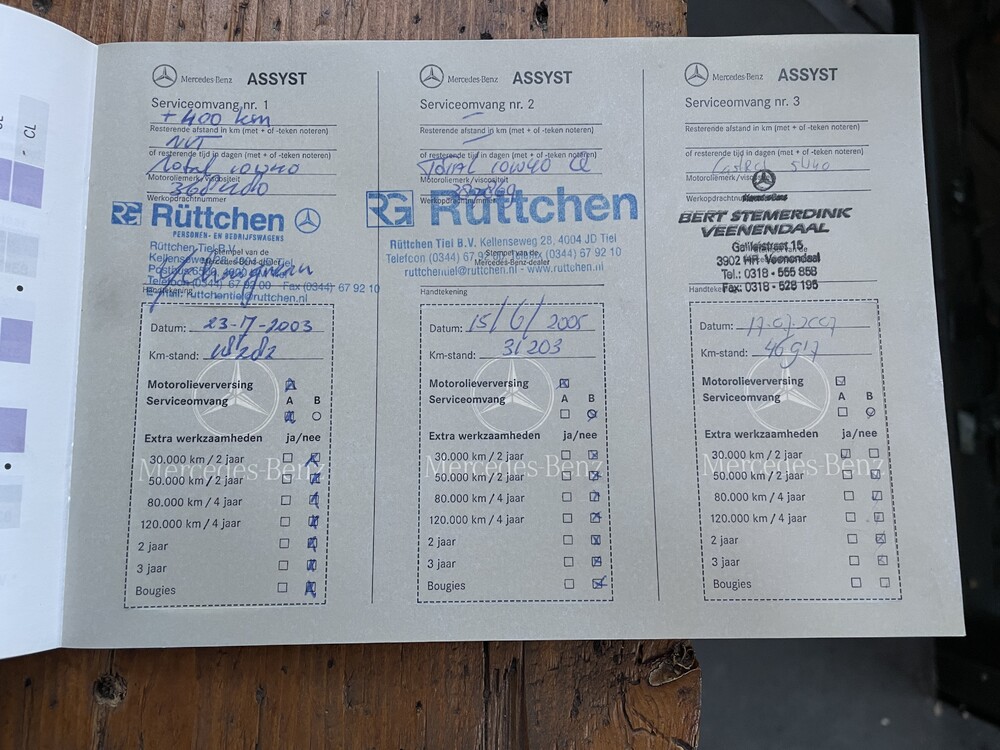 CL
Mercedes-Benz ASSYST
Serviceomvang nr. 1
+ 400 km
Resterende afstand in km (met + of -teken noteren)
NVT
of resterende tijd in dagen (met + of -teken noteren)
Total 10W40
Motoroliemerk/viscositeit
Werkopdrachtnummer
RG Rüttchen
PERSONEN- EN BEDRIJFSWAGENS
Rüttchen Tiel B.V.
Stempel van de
Mercedes-Benz-dealer
Fax (0344) 67 92 10
E-mail: ruttchentiel@ruttchen.nl
Handtekening
Datum: 23-7-2003
Km-stand: 18282
Motorolieverversing
Serviceomvang A B
Extra werkzaamheden ja/nee
30.000 km / 2 jaar
50.000 km / 2 jaar
80.000 km / 4 jaar
120.000 km / 4 jaar
2 jaar
3 jaar
Bougies
Mercedes-Benz
Mercedes-Benz ASSYST
Serviceomvang nr. 2
Resterende afstand in km (met + of -teken noteren)
of resterende tijd in dagen (met + of -teken noteren)
TOTAL 10W40
Motoroliemerk/viscositeit
Werkopdrachtnummer
RG Rüttchen
Rüttchen Tiel B.V. Kellenseweg 28, 4004 JD Tiel
Stempel van de
Mercedes-Benz-dealer
ruttchentiel@ruttchen.nl - www.ruttchen.nl
Handtekening
Datum: 15/6/2005
Km-stand: 31203
Motorolieverversing
Serviceomvang A B
Extra werkzaamheden ja/nee
30.000 km / 2 jaar
50.000 km / 2 jaar
80.000 km / 4 jaar
120.000 km / 4 jaar
2 jaar
3 jaar
Bougies
Mercedes-Benz
Mercedes-Benz ASSYST
Serviceomvang nr. 3
Resterende afstand in km (met + of -teken noteren)
of resterende tijd in dagen (met + of -teken noteren)
Castrol 5W40
Motoroliemerk/viscositeit
Mercedes-Benz
Werkopdrachtnummer
BERT STEMERDINK
VEENENDAAL
Galileistraat 15
3902 HR Veenendaal
Tel.: 0318 - 555 858
Fax: 0318 - 528 195
Datum: 17-07-2007
Km-stand: 46917
Motorolieverversing
Serviceomvang A B
Extra werkzaamheden ja/nee
30.000 km / 2 jaar
50.000 km / 2 jaar
80.000 km / 4 jaar
120.000 km / 4 jaar
2 jaar
3 jaar
Bougies
Mercedes-Benz